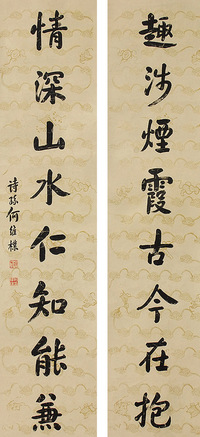 趣涉煙霞古今在抱
情深山水仁知能兼
詩孫何維樸